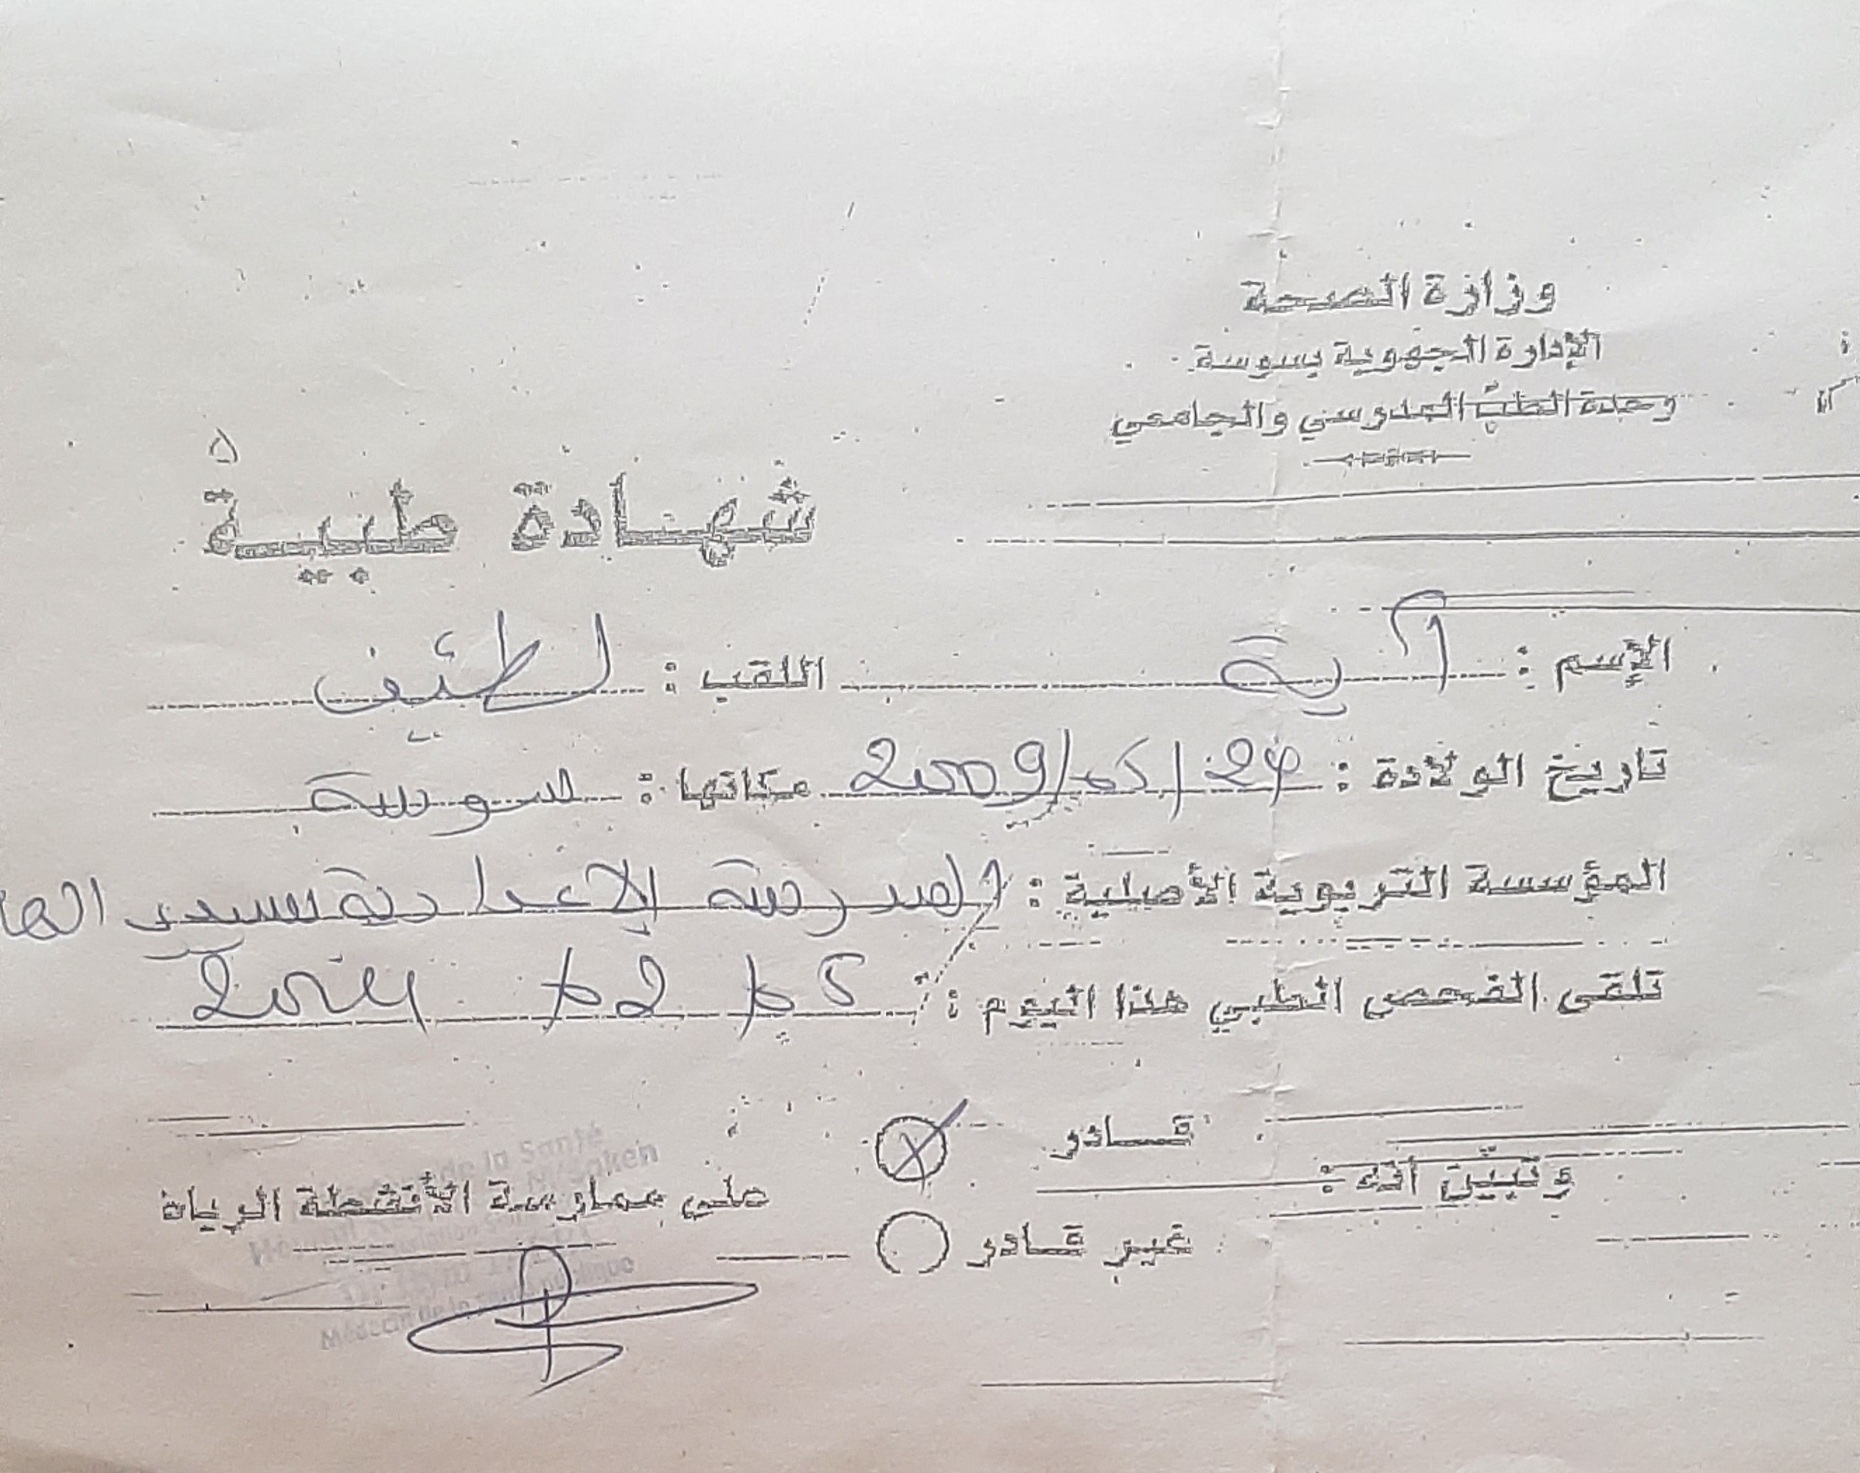 وزارة الصحة
الإدارة الجهوية بسوسة
وحدة الطبّ المدرسي والجامعي
شهادة طبية
الإسم : آية اللقب : لطئيف
تاريخ الولادة : 24 / 05 / 2009 مكانها : سوسة
المؤسسة التربوية الأصلية : المدرسة الإعدادية بسيدي الها
تلقى الفحص الطبي هذا اليوم : 05 02 2024
وتبيّن أنه : قادر
غير قادر
على ممارسة الأنشطة الرياة
de la Santé
M'Saken
Médecin de la Santé publique